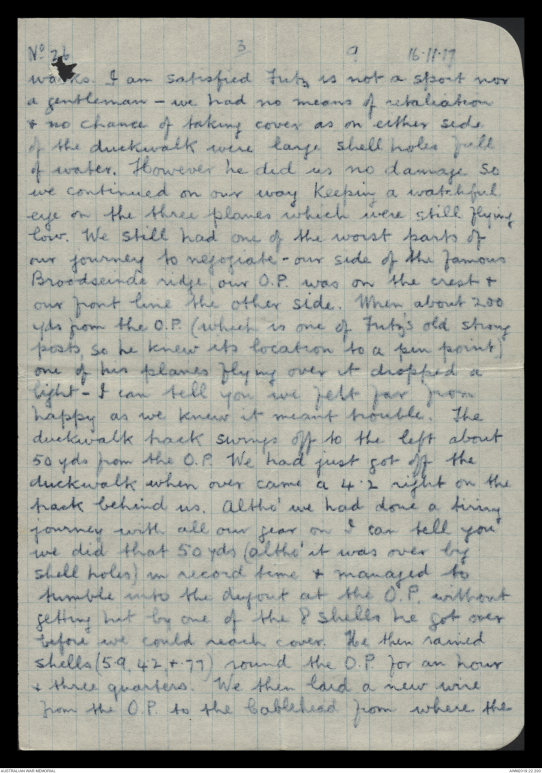 No 26 3 9 16-11-17
walks. I am satisfied Fritz is not a sport nor
a gentleman - we had no means of retaliation
& no chance of taking cover as on either side
of the duckwalk were large shell holes full
of water. However he did us no damage so
we continued on our way keeping a watchful
eye on the three planes which were still flying
low. We still had one of the worst parts of
our journey to negogiate - our side of the famous
Broodseinde ridge, our O.P. was on the crest &
our front line the other side. When about 200
yds from the O.P. (which is one of Fritz's old strong
posts so he knew its location to a pin point)
one of his planes flying over it dropped a
light - I can tell you we felt far from
happy as we knew it meant trouble. The
duckwalk track swings off to the left about
50 yds from the O.P. We had just got off the
duckwalk when over came a 4.2 right on the
track behind us. Altho' we had done a tiring
journey with all our gear on I can tell you
we did that 50 yds (altho' it was over big
shell holes) in record time & managed to
tumble into the dugout at the O.P. without
getting hit by one of the 8 shells he got over
before we could reach cover. He then rained
shells (5.9, 4.2 & 77) round the O.P. for an hour
& three quarters. We then laid a new wire
from the O.P. to the Cablehead from where the
AUSTRALIAN WAR MEMORIAL